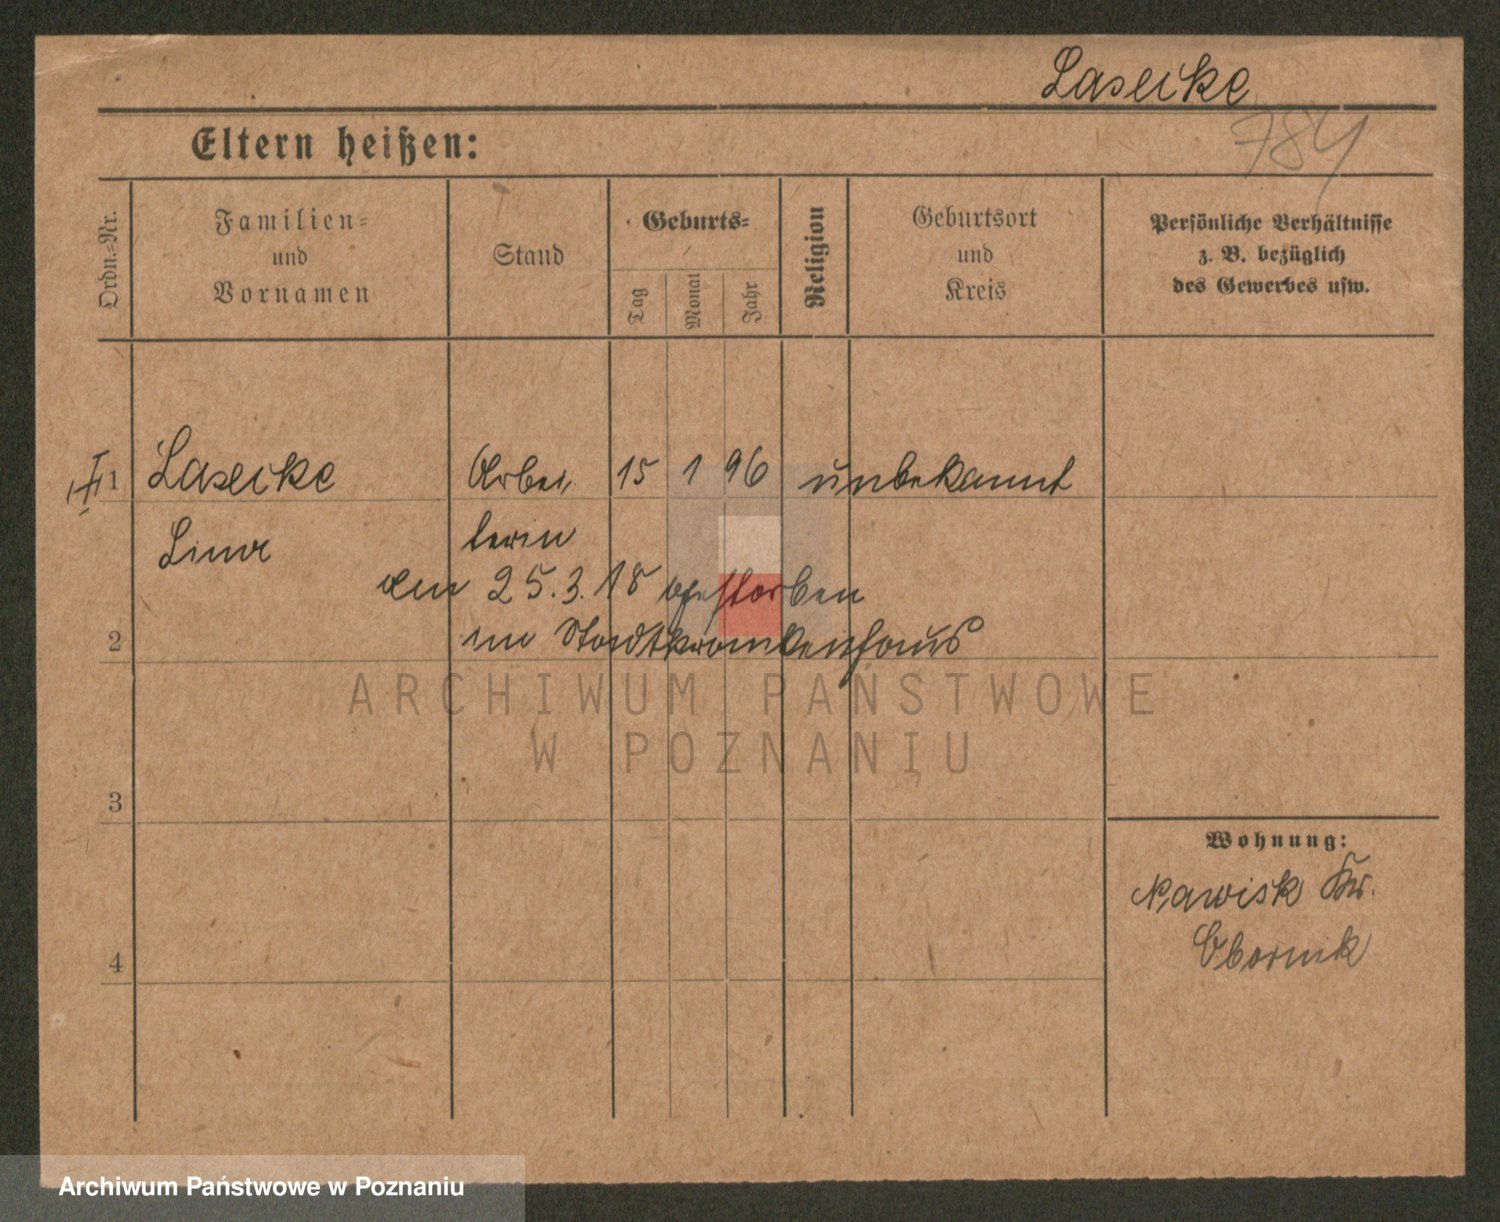 Laseike
784
Eltern heißen:
Ordn.-Nr.
Familien-
und
Vornamen
Stand
Geburts-
Tag
Monat
Jahr
Religion
Geburtsort
und
Kreis
Persönliche Verhältnisse
z. B. bezüglich
des Gewerbes usw.
1 Laseike Arbei, 15 1 96 unbekannt
Lina terin
am 25.3.18 gestorben
2 im Stadtkrankenhaus
ARCHIWUM PAŃSTWOWE
W POZNANIU
3
Wohnung:
Nawisk Kr.
Obornik
4
Archiwum Państwowe w Poznaniu